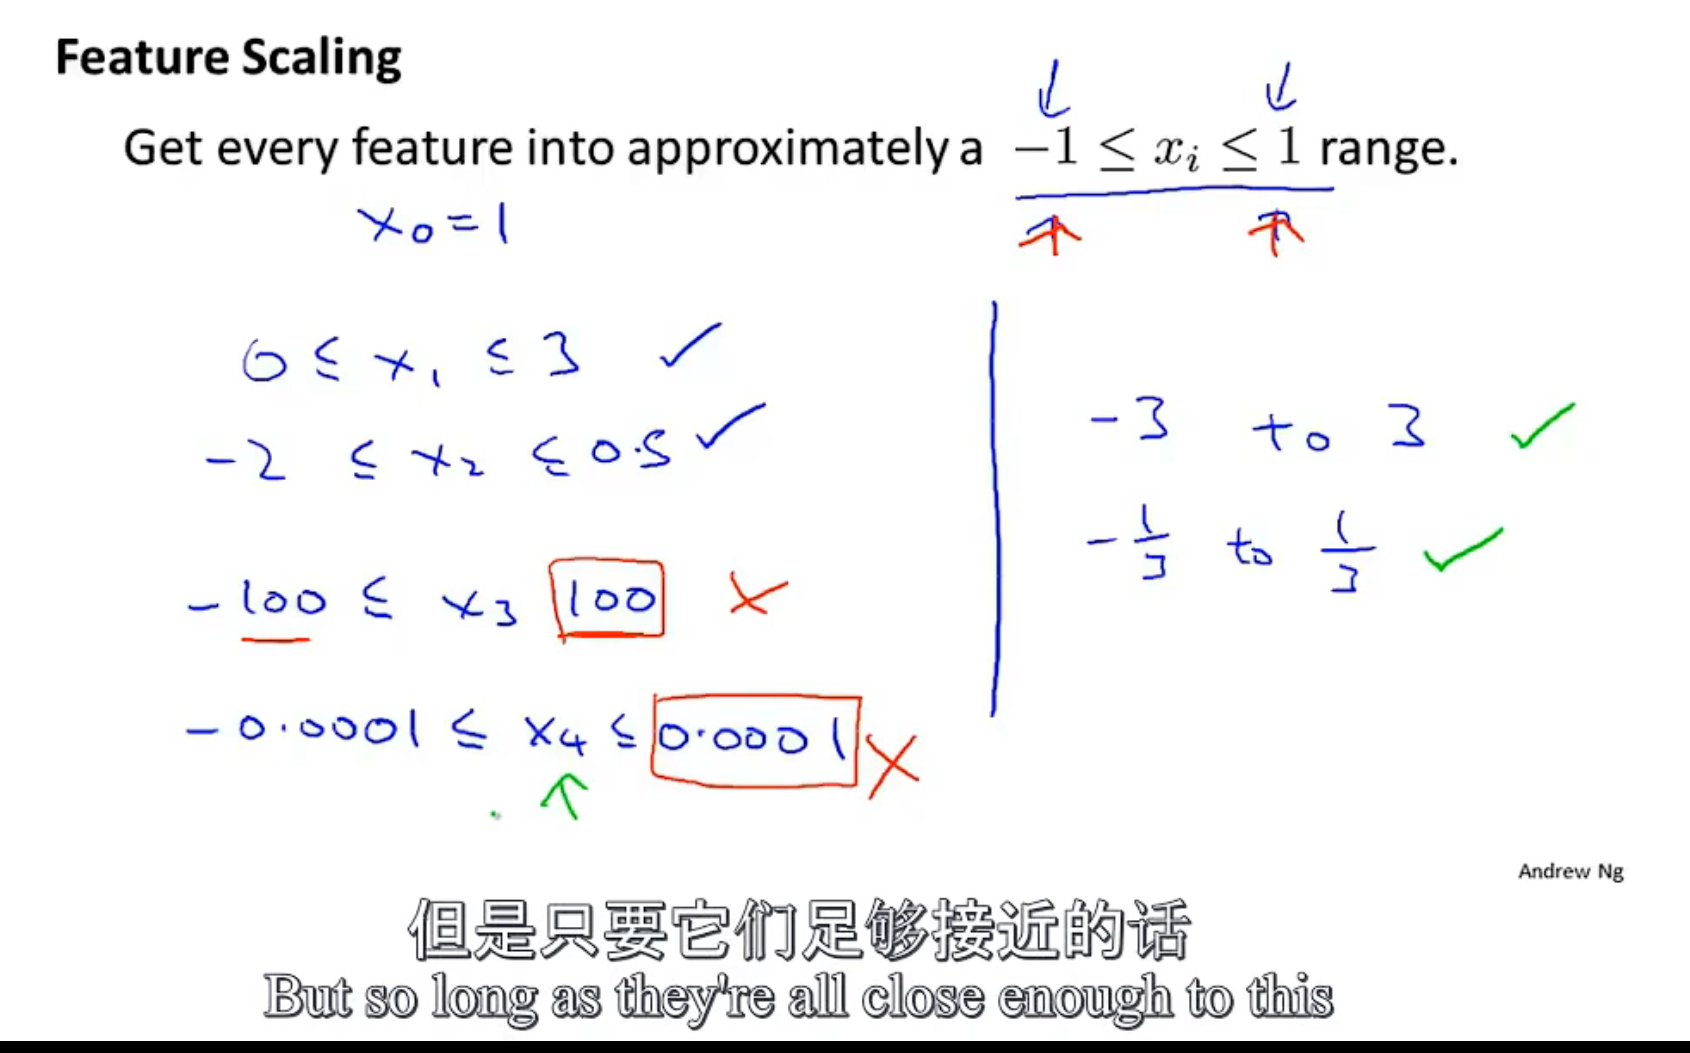 Feature Scaling
Get every feature into approximately a −1 ≤ xᵢ ≤ 1 range.
x₀ = 1
0 ≤ x₁ ≤ 3 ✓
-2 ≤ x₂ ≤ 0.5 ✓
-100 ≤ x₃ 100 ×
-0.0001 ≤ x₄ ≤ 0.0001 ×
-3 to 3 ✓
-1/3 to 1/3 ✓
Andrew Ng
但是只要它们足够接近的话
But so long as they're all close enough to this